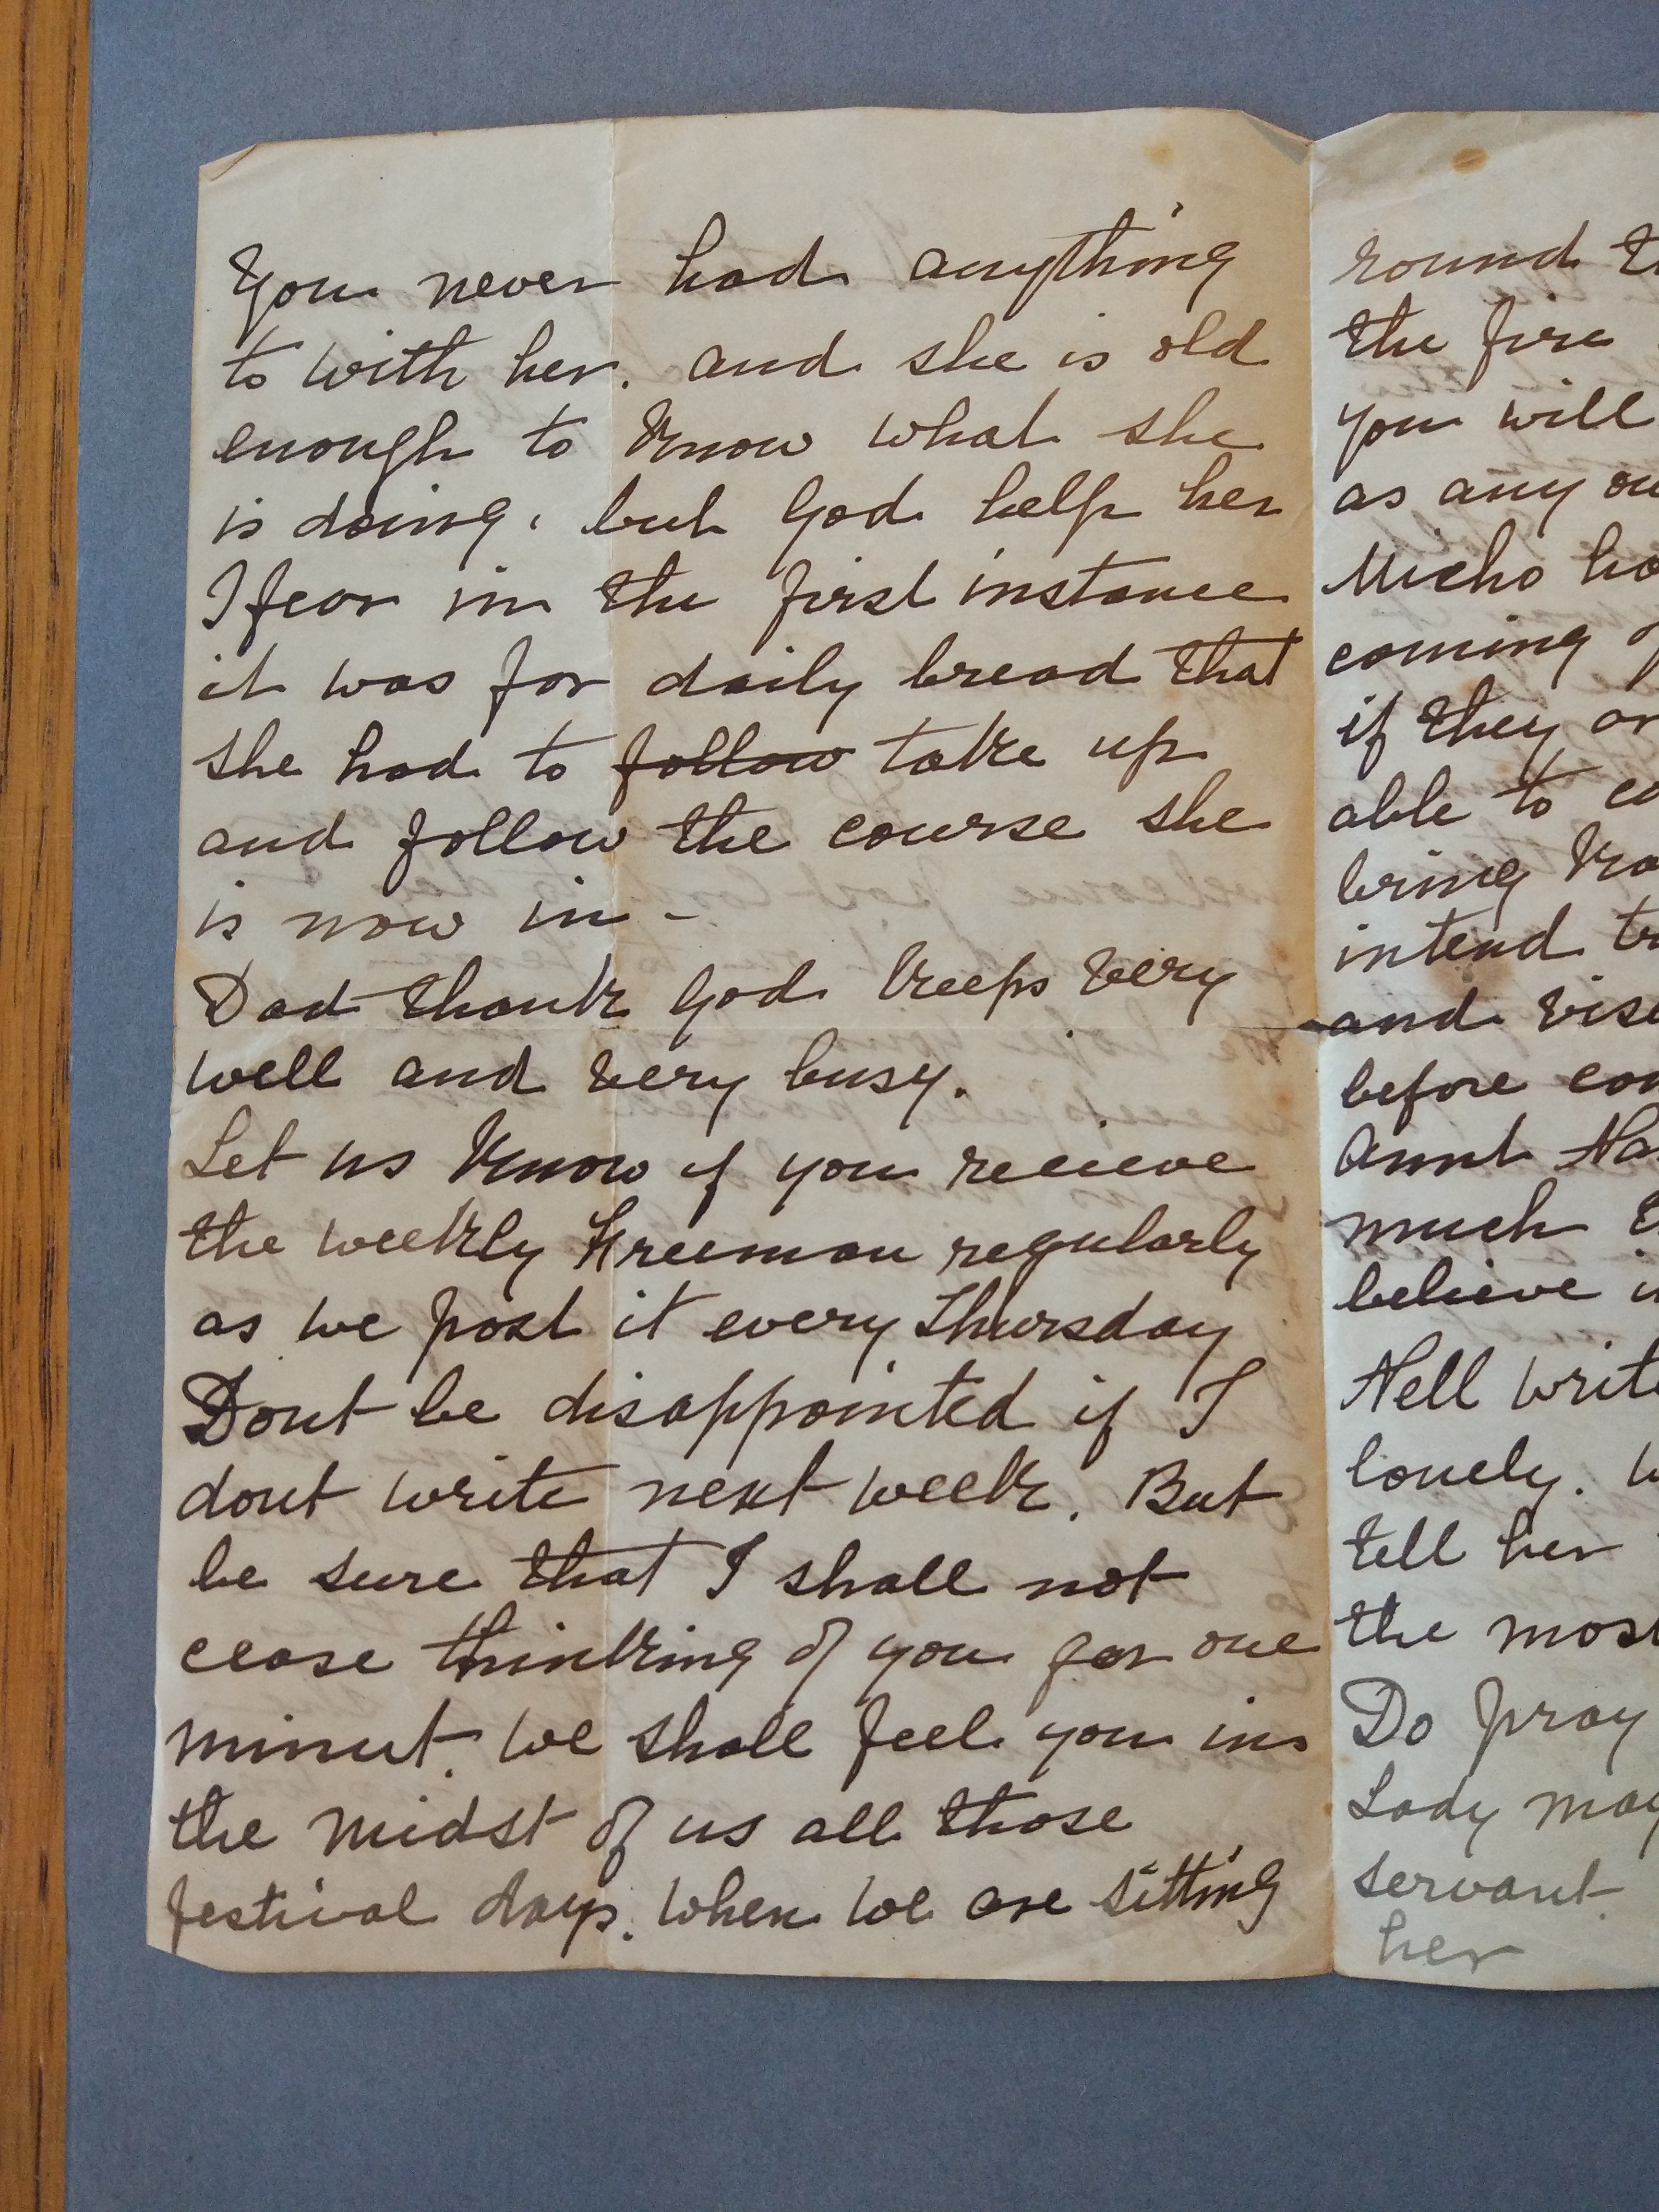 You never had anything
to with her. and she is old
enough to know what she
is doing, but God help her
I fear in the first instance
it was for daily bread that
she had to follow take up
and follow the course she
is now in -
Dad thank God keeps very
well and very busy.
Let us know if you recieve
the weekly Freeman regularly
as we post it every Thursday
Dont be disappointed if I
dont write next week. But
be sure that I shall not
cease thinking of you for one
minut. We shall feel you in
the midst of us all those
festival days. When we are sitting
round
the fire
you will
as any
Micho
coming
if they
able to
bring
intend
and
before
Aunt
much
believe
Nell
lonely.
tell her
the most
Do pray
Lady may
servant.
her